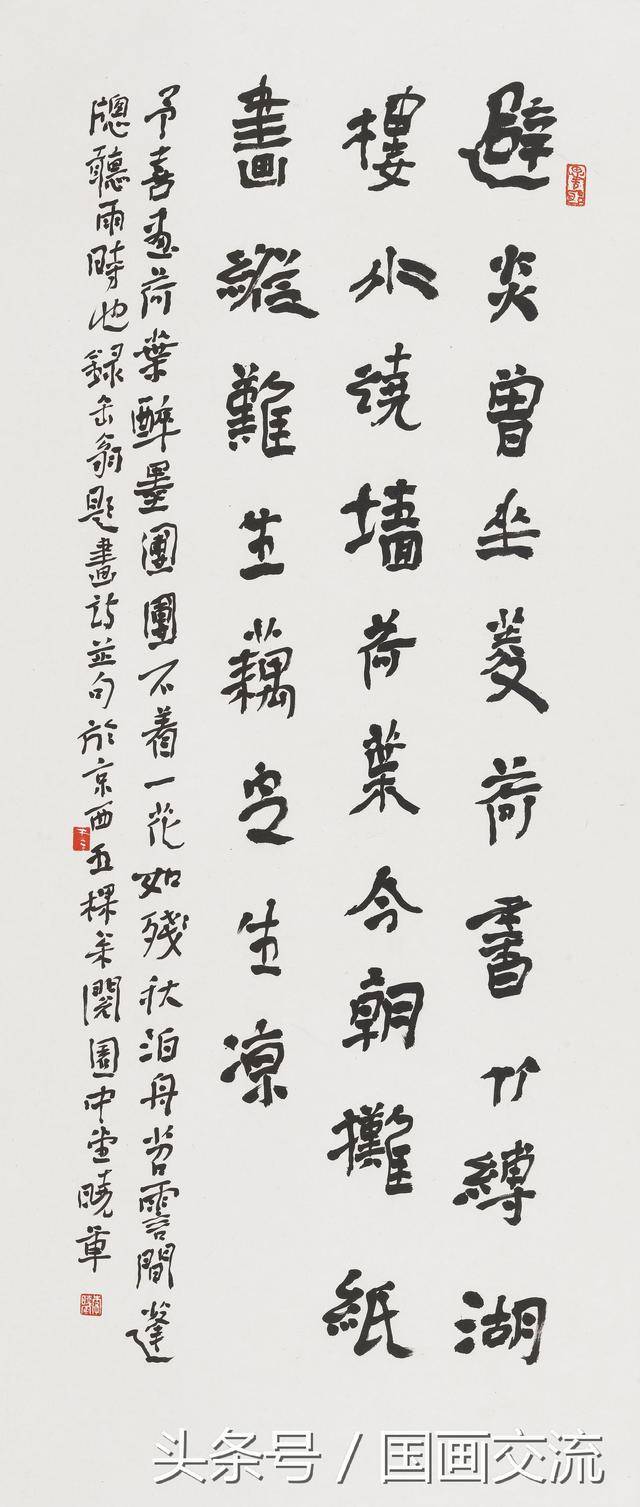 避炎曾坐芰荷香竹縛湖
樓水繞墻荷葉今朝攤紙
畫縱難生藕定生凉
予喜畫荷葉醉墨團團不着一花如殘秋泊舟苕霅間篷
牕聽雨時也錄缶翁題畫詩並句於京西五棵閱園中曉
头条号 / 国画交流